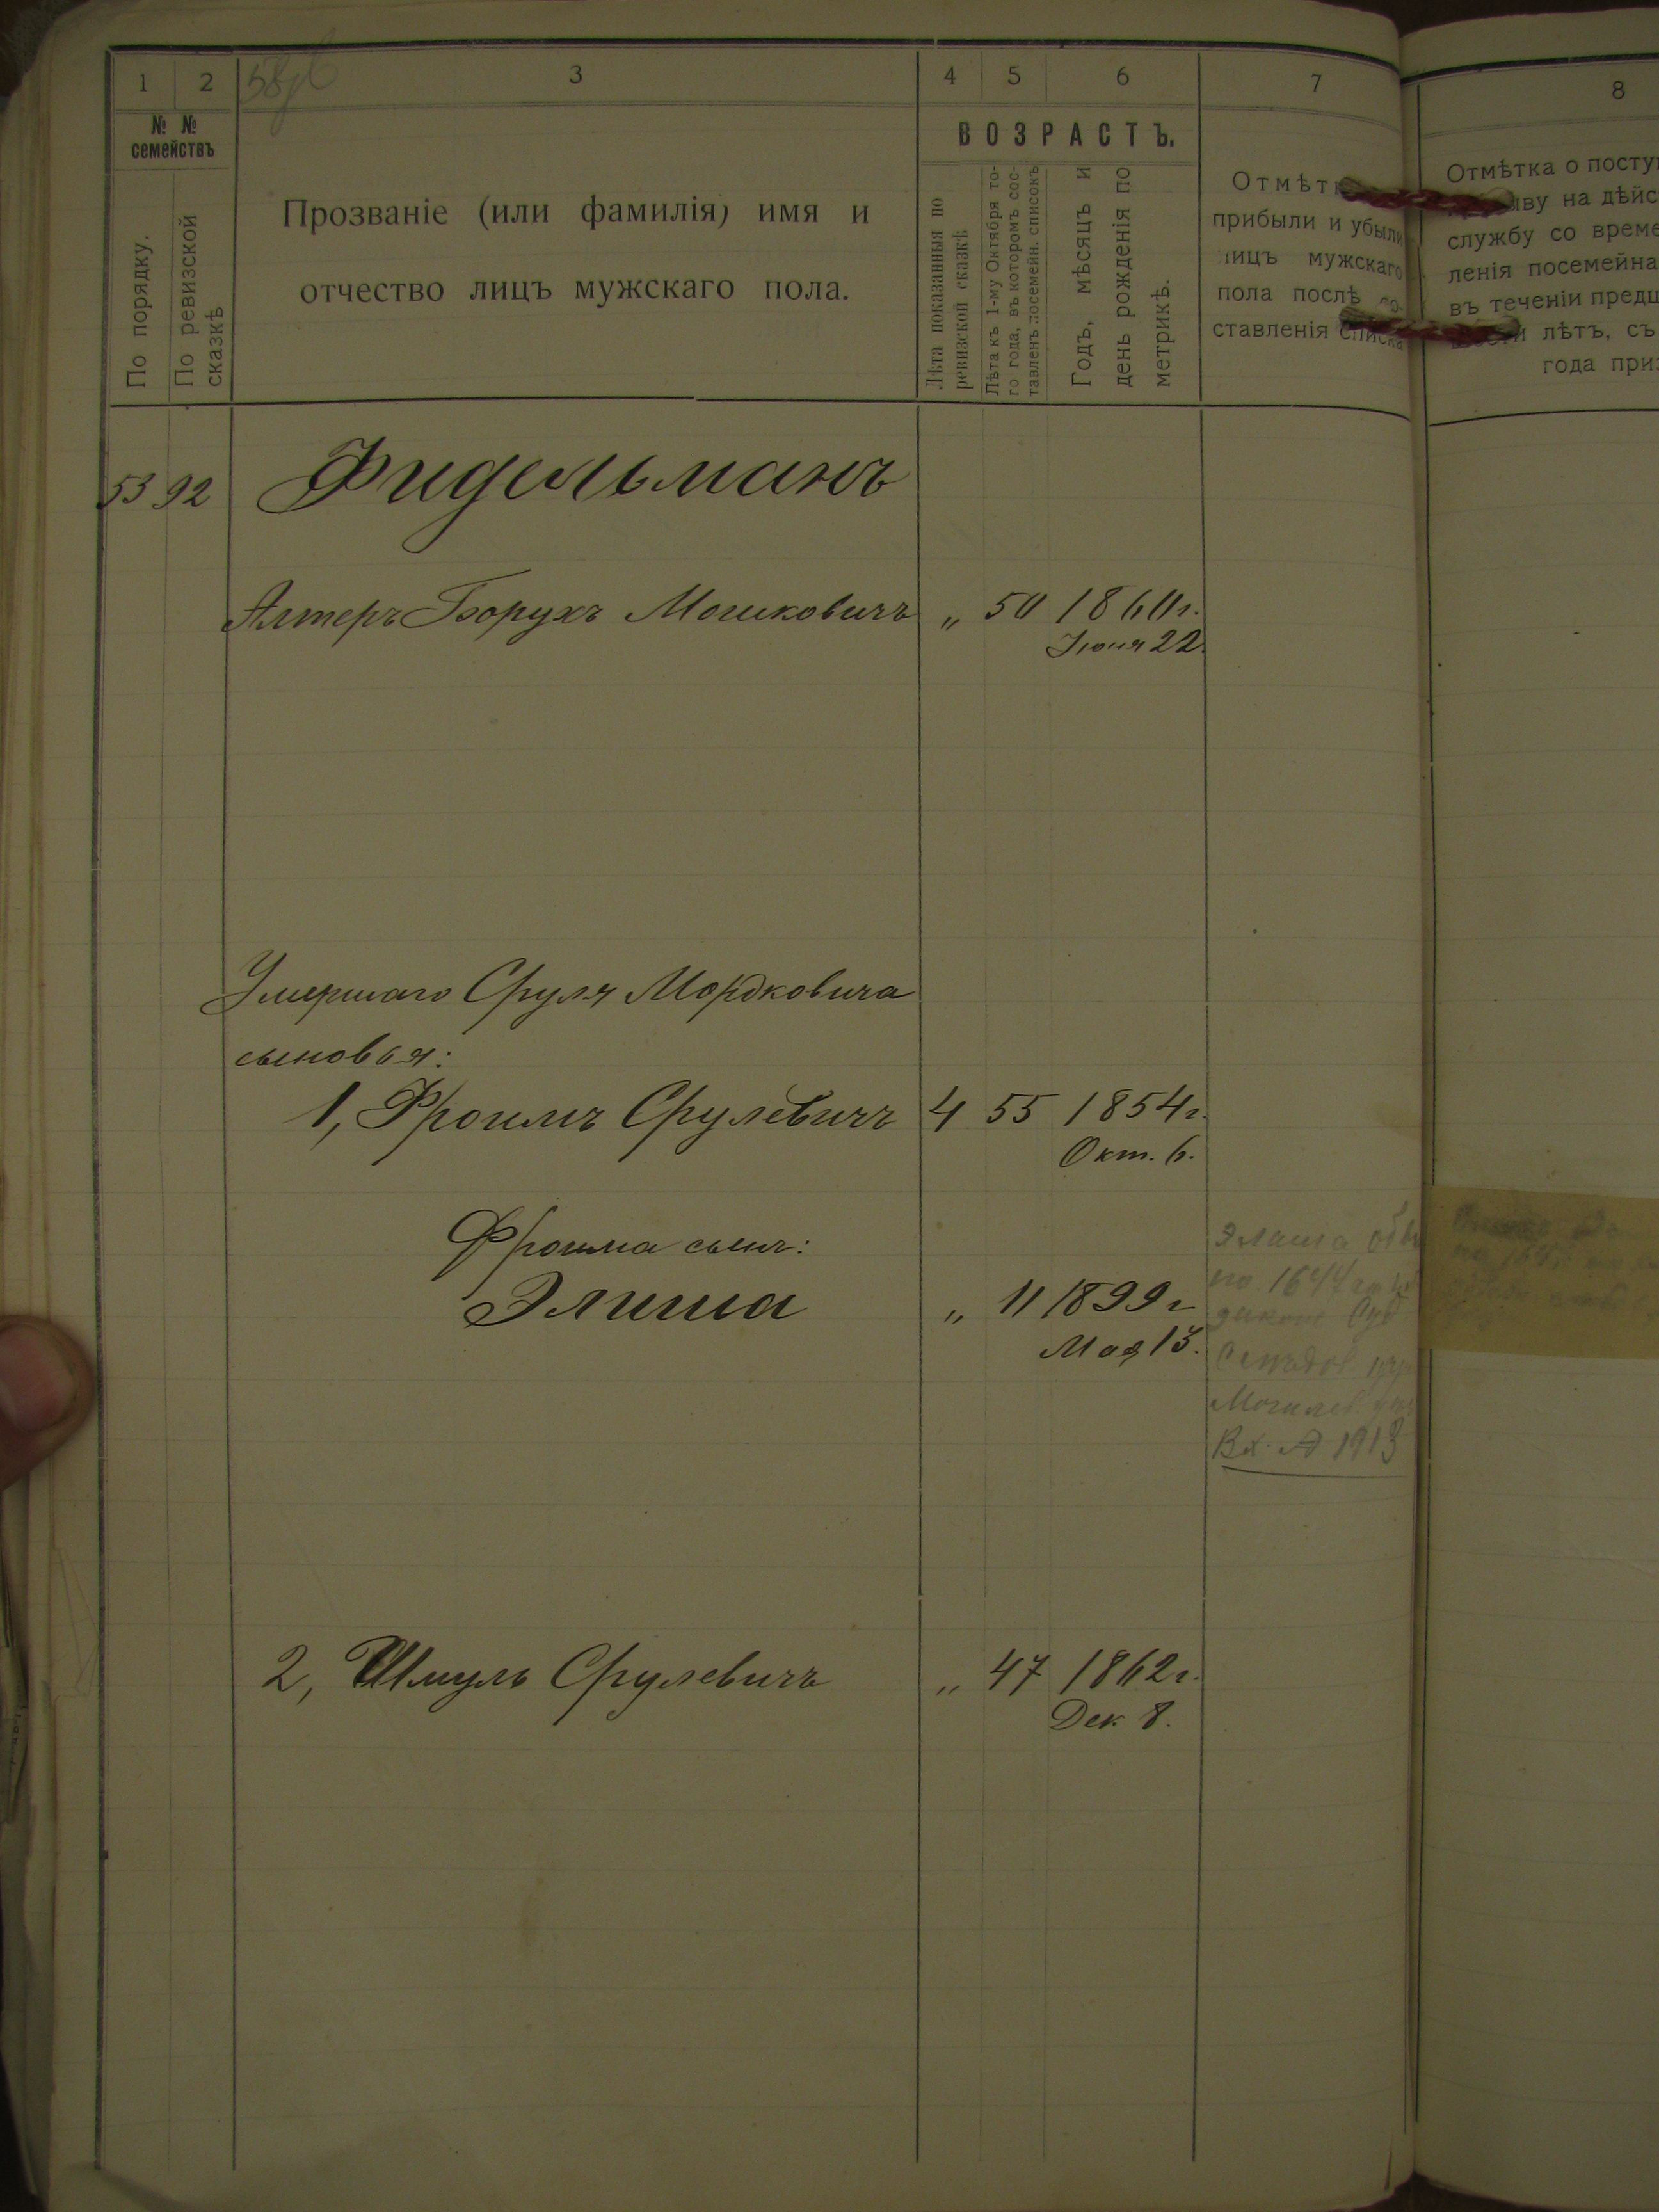 1 2 3 4 5 6 7 8
№ № семействъ
По порядку.
По ревизской сказкѣ
Прозваніе (или фамилія) имя и
отчество лицъ мужскаго пола.
ВОЗРАСТЪ.
Лѣта показанныя по
ревизской сказкѣ
Лѣта къ 1-му Октября то-
го года, въ которомъ сос-
тавленъ посемейн. списокъ
Годъ, мѣсяцъ и
день рожденія по
метрикѣ.
прибыли и убыли
лицъ мужскаго
пола послѣ со-
ставленія списка
Отмѣтка о посту
на дѣйс
службу со време
ленія посемейна
въ теченіи предш
лѣтъ, съ
года приз
53 92 Фидельманъ
Алтеръ Борухъ Мошковичъ „ 50 1860 г.
Іюня 22.
Умершаго Сруля Мордковича
сыновья:
1, Фроимъ Срулевичъ 4 55 1854 г.
Окт. 6.
Фроима сынъ:
Элиша „ 11 1899 г
Мая 13.
Элиша
по 1644
Могилев
Вх. 1913
2, Шмуль Срулевичъ „ 47 1862 г.
Дек. 8.